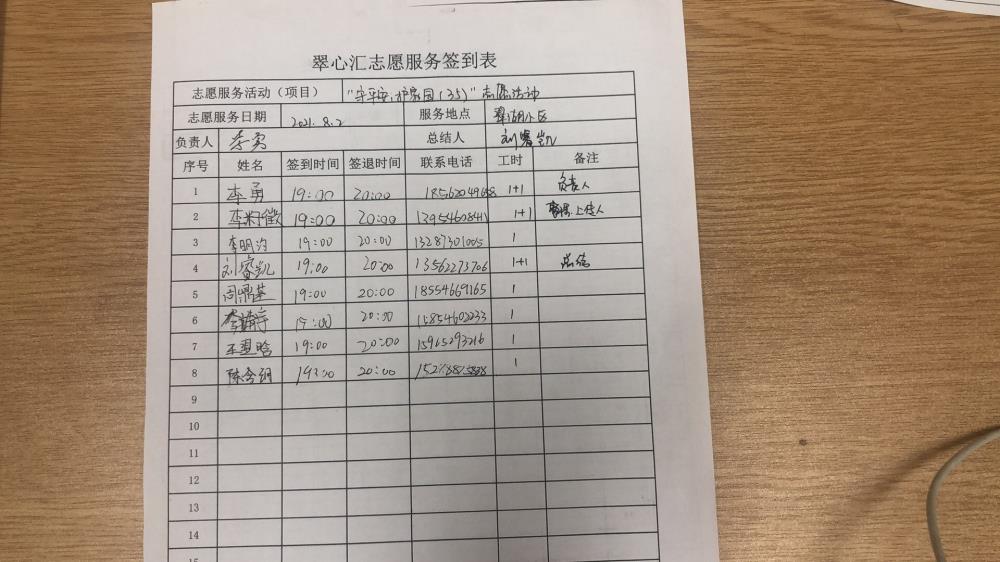 翠心汇志愿服务签到表
志愿服务活动（项目） "守平安,护家园(35)"志愿活动
志愿服务日期 2021.8.2 服务地点 翠湖小区
负责人 李勇 总结人 刘睿凯
序号 姓名 签到时间 签退时间 联系电话 工时 备注
1 李勇 19:00 20:00 1+1 负责人
2 19:00 20:00 13954608411 1+1 上传人
3 李明 19:00 20:00 13287301005 1
4 刘睿凯 19:00 20:00 13562273706 1+1 总结
5 周鼎 19:00 20:00 18554669165 1
6 19:00 20:00 15854602233 1
7 王 晗 19:00 20:00 15965293216 1
8 陈 20:00 1
9
10
11
12
13
14
15